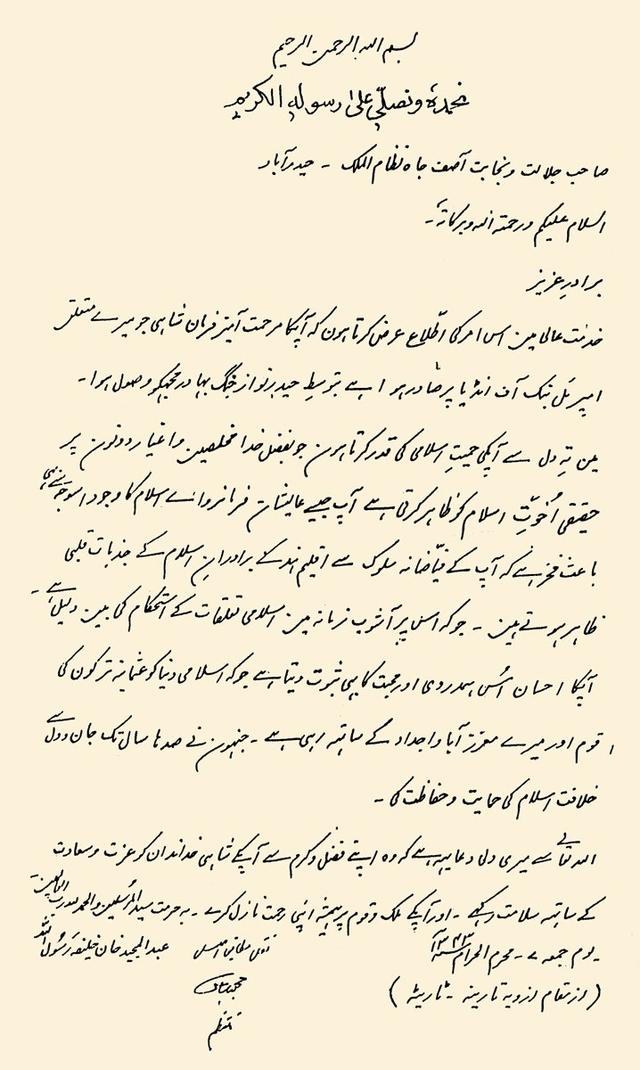 بسم الله الرحمن الرحیم
نحمدہٗ ونصلّی علیٰ رسولہٖ الکریم
صاحب جلالت و نجابت آصف جاہ نظام الملک ۔ حیدرآباد
السلام علیکم ورحمتہ اللہ وبرکاتہٗ۔
برادرِ عزیز
خدمت عالی مین اس امر کی اطّلاع عرض کرتا ہون کہ آپکا مرحمت آمیز فرمان شاہی جو میرے متعلق
امپریل بنک آف انڈیا پر صادر ہوا ہے بتوسطِ حیدر نواز جنگ بہادر مجھکو وصول ہوا۔
مین تہِ دل سے آپکی حمیتِ اسلامی کا قدر کرتا ہون جو بفضل خدا مخلصین و اغیار دونون پر
حقیقی اُخوّتِ اسلام کو ظاہر کرتی ہے آپ جیسے عالیشان فرمانروائے اسلام کا وجود اسوجہ سے بھی
باعث فخر ہے کہ آپ کے فیّاضانہ سلوک سے اقلیم ہند کے برادرانِ اسلام کے جذبات قلبی
ظاہر ہوتے ہین ۔ جو کہ اس پر آشوب زمانہ مین اسلامی تعلقات کے استحکام کی بین دلیل ہے۔
آپکا احسان اُس ہمدردی اور محبت کا بہی ثبوت دیتا ہے جو کہ اسلامی دنیا کو عثمانیہ ترکون کی
قوم اور میرے معزز آبا و اجداد کے ساتہہ رہی ہے ۔ جنہون نے صدہا سال تک جان و دل سے
خلافت اسلام کی حمایت و حفاظت کی ۔
اللہ تعالٰی سے میری دلی دعا یہہ ہے کہ وہ اپنے فضل و کرم سے آپکے شاہی خاندان کو عزت و سعادت
کے ساتہہ سلامت رکہے ۔ اور آپکے ملک و قوم پر ہمیشہ اپنی رحمت نازل کرے ۔ بہ حرمت سید المرسلین والحمد للہ رب العالمین
۔ یوم جمعہ ۷ ۔ محرم الحرام نقل مطابق اصل عبد المجید خان خلیفہ رسول اللہ
(از مقام
منتظم